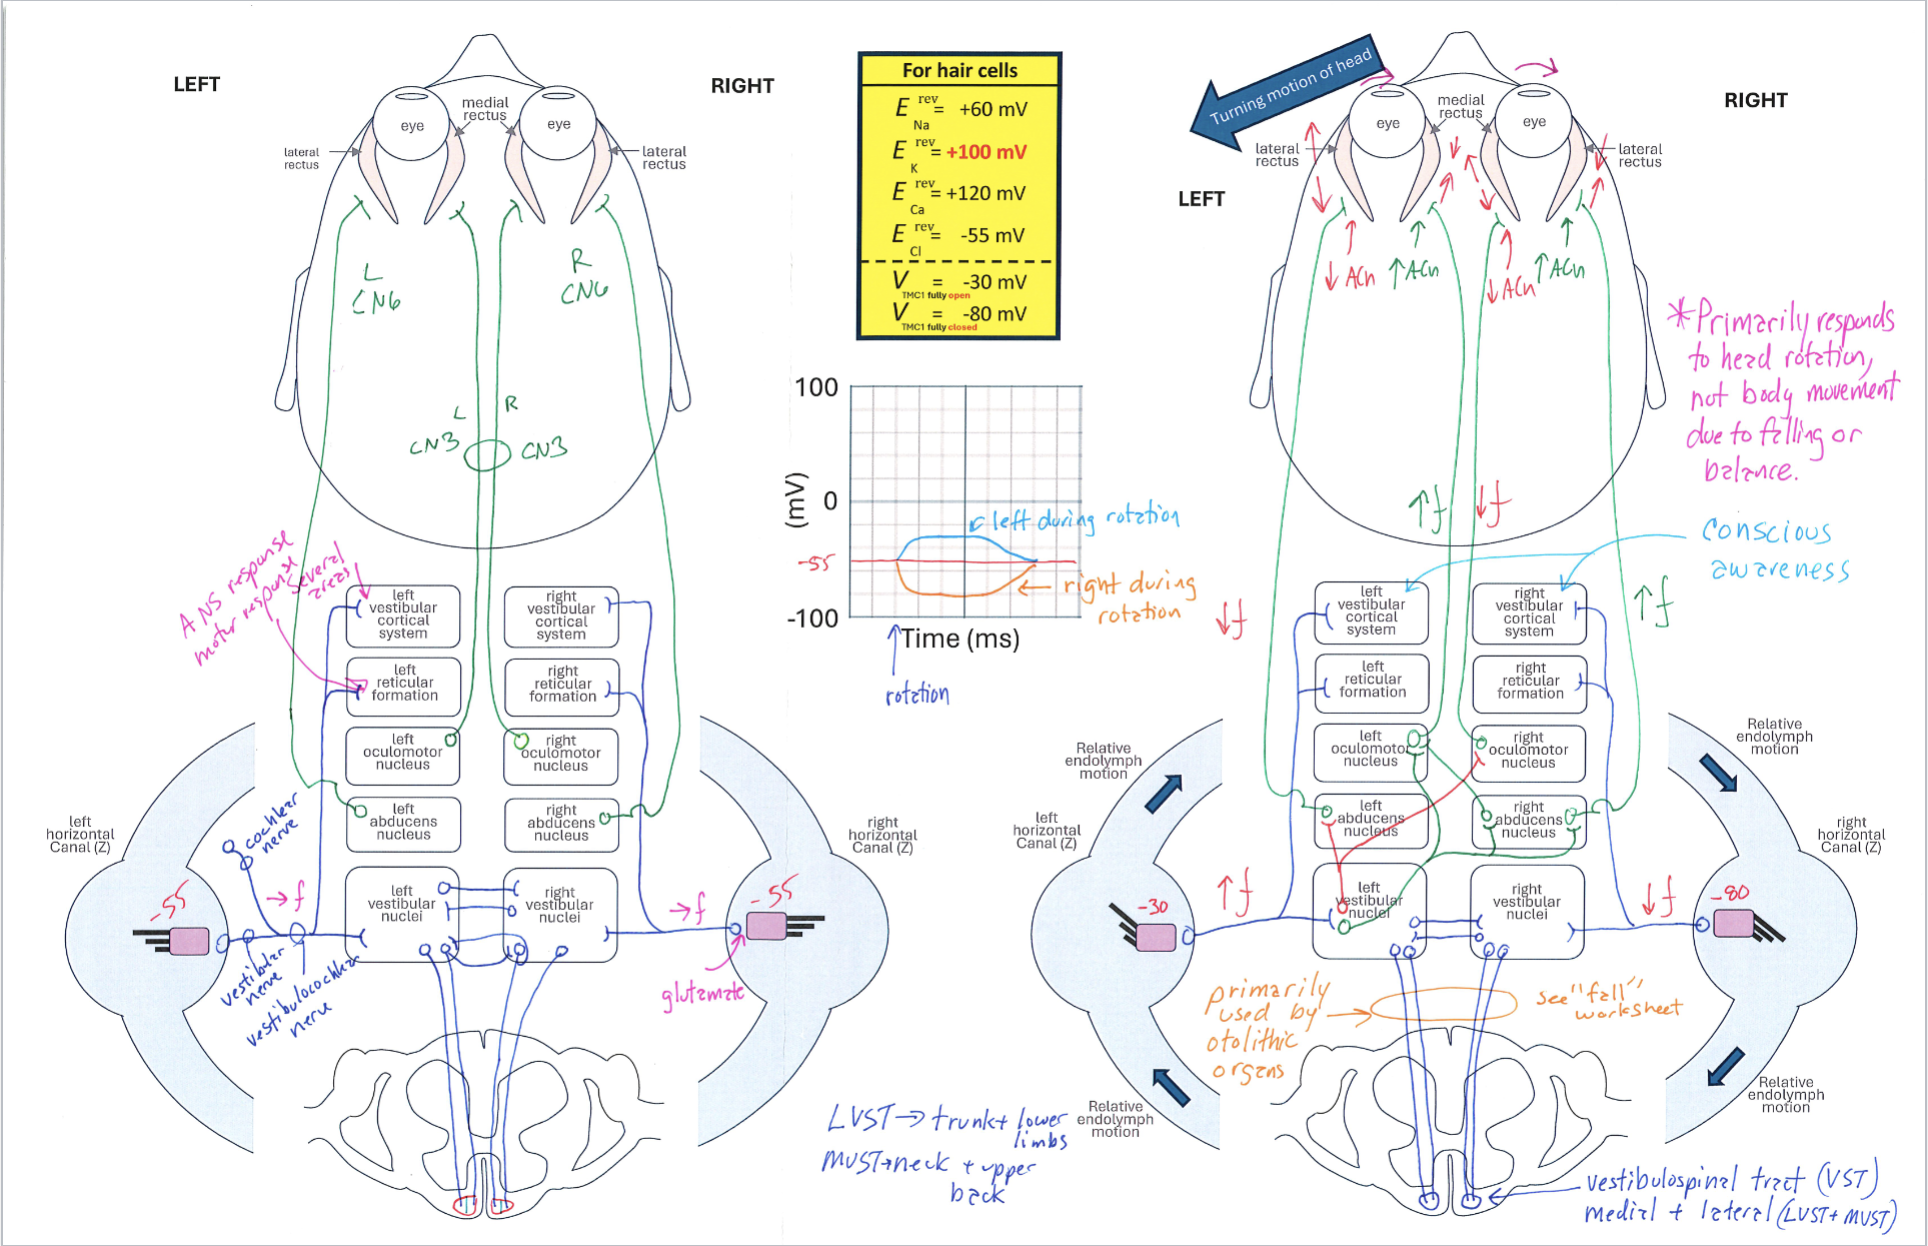 LEFT
RIGHT
medial
rectus
eye
eye
lateral
rectus
lateral
rectus
L
CN6
R
CN6
L
R
CN3
CN3
ANS response
motor response
several
areas
left
vestibular
cortical
system
right
vestibular
cortical
system
left
reticular
formation
right
reticular
formation
left
oculomotor
nucleus
right
oculomotor
nucleus
left
abducens
nucleus
right
abducens
nucleus
left
vestibular
nuclei
right
vestibular
nuclei
left
horizontal
Canal (Z)
right
horizontal
Canal (Z)
cochlear
nerve
→f
-55
vestibular
nerve
vestibulocochlear
nerve
→f
-55
glutamate
For hair cells
E rev Na = +60 mV
E rev K = +100 mV
E rev Ca = +120 mV
E rev Cl = -55 mV
V TMC1 fully open = -30 mV
V TMC1 fully closed = -80 mV
100
0
-55
-100
(mV)
Time (ms)
left during rotation
right during
rotation
rotation
LVST → trunk + lower
limbs
MVST → neck + upper
back
Turning motion of head
LEFT
RIGHT
medial
rectus
eye
eye
lateral
rectus
lateral
rectus
↓ACh
↑ACh
↓ACh
↑ACh
*Primarily responds
to head rotation,
not body movement
due to falling or
balance.
↑f
↓f
conscious
awareness
↓f
↑f
left
vestibular
cortical
system
right
vestibular
cortical
system
left
reticular
formation
right
reticular
formation
left
oculomotor
nucleus
right
oculomotor
nucleus
left
abducens
nucleus
right
abducens
nucleus
left
vestibular
nuclei
right
vestibular
nuclei
Relative
endolymph
motion
Relative
endolymph
motion
left
horizontal
Canal (Z)
right
horizontal
Canal (Z)
↑f
-30
↓f
-80
primarily
used by
otolithic
organs
see "fall"
worksheet
Relative
endolymph
motion
Relative
endolymph
motion
vestibulospinal tract (VST)
medial + lateral (LVST + MVST)